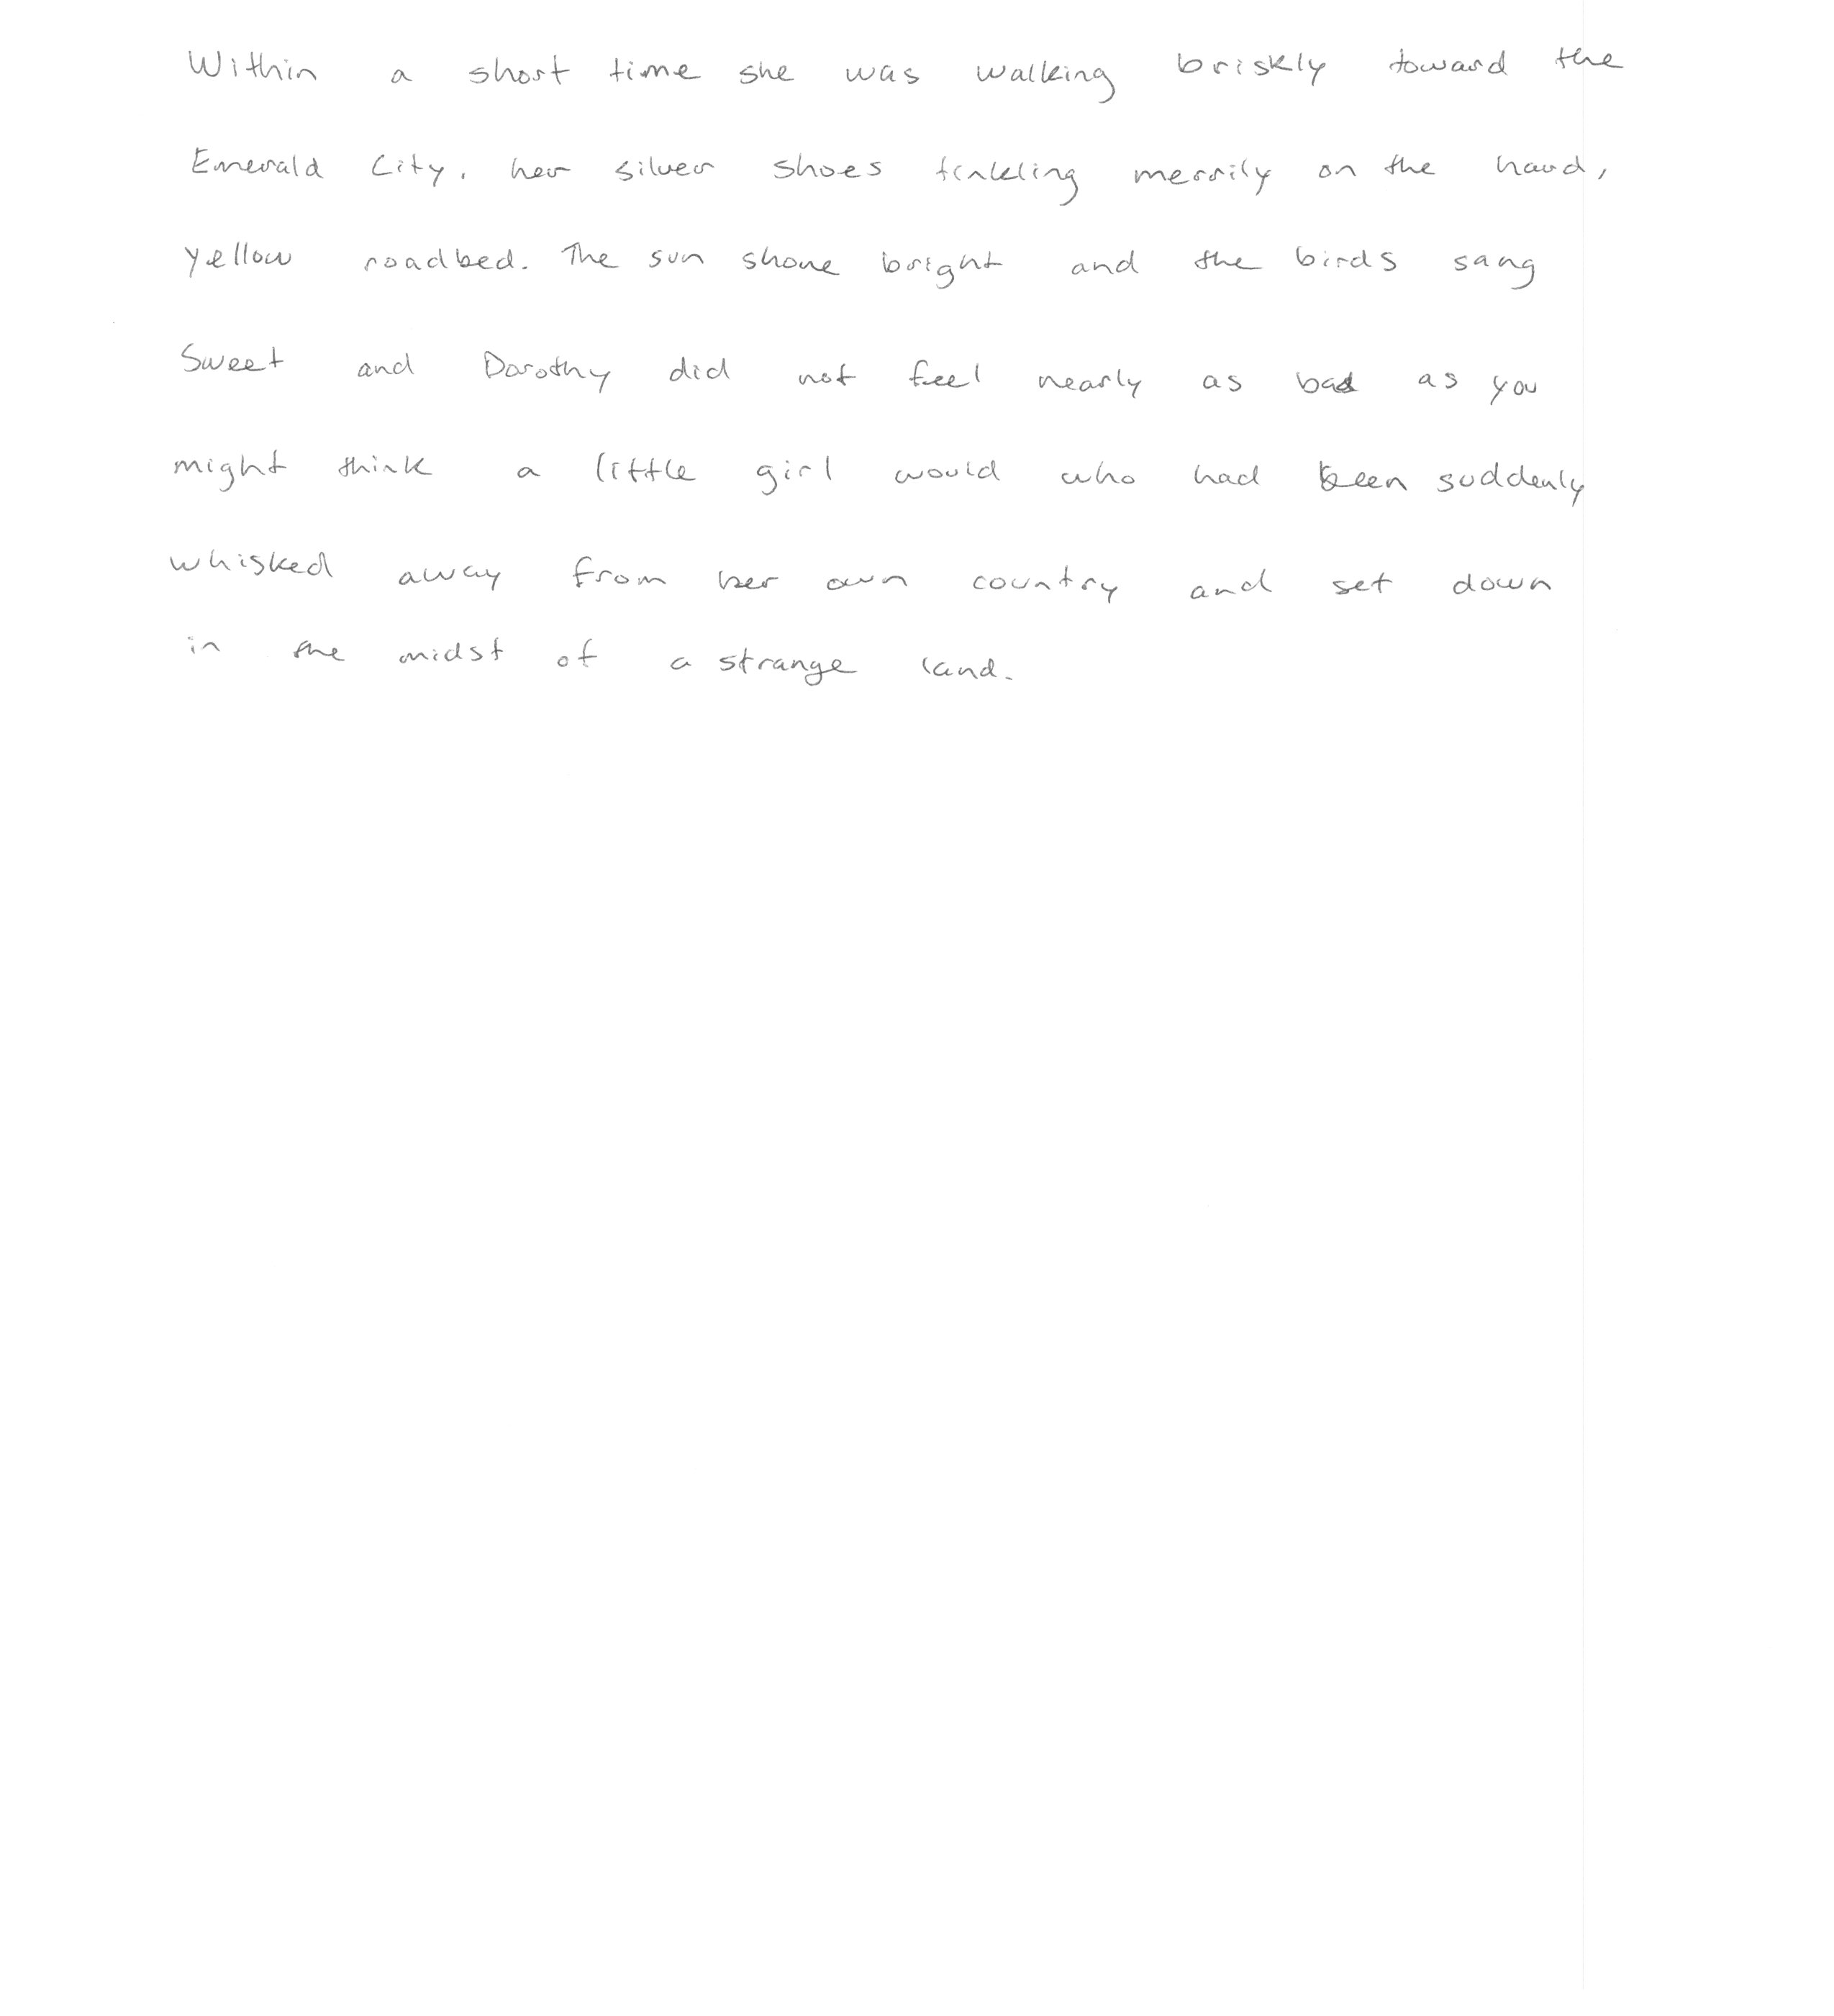 Within a short time she was walking briskly toward the
Emerald City, her silver shoes tinkling merrily on the hard,
yellow roadbed. The sun shone bright and the birds sang
Sweet and Dorothy did not feel nearly as bad as you
might think a little girl would who had been suddenly
whisked away from her own country and set down
in the midst of a strange land.